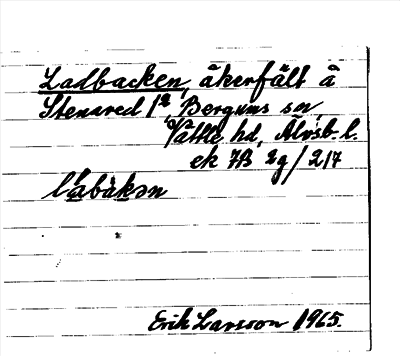 Ladbacken, åkerfält å
Stenared 1², Bergums sn,
Vättle hd, Älvsb. l.
ek 7B 2g/217
lábàkən
Erik Larsson 1965.